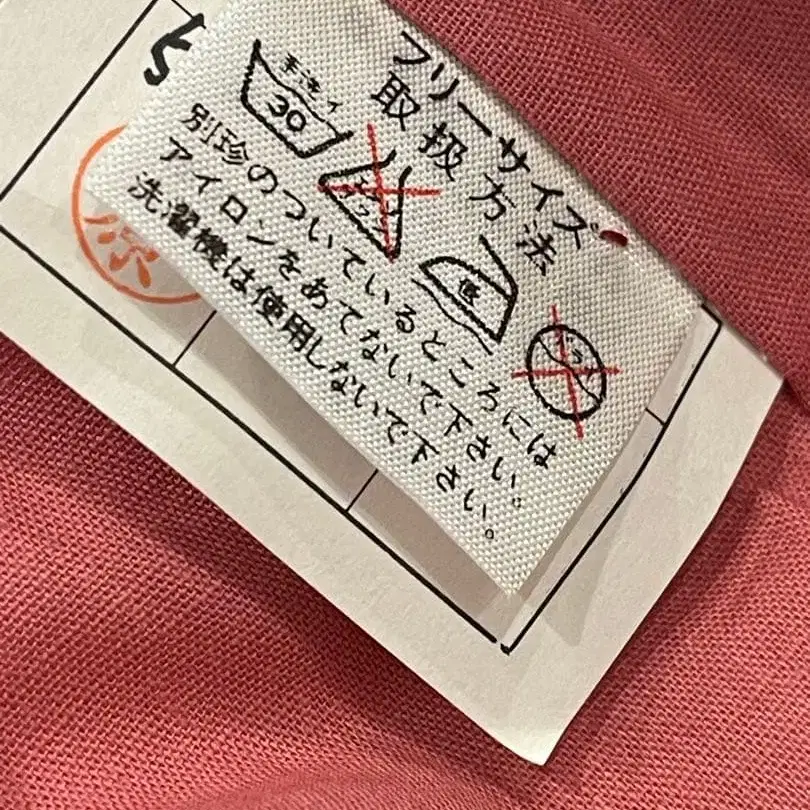 フリーサイズ
取扱方法
手洗イ
30
低
別珍のついているところには
アイロンをあてないで下さい。
洗濯機は使用しないで下さい。